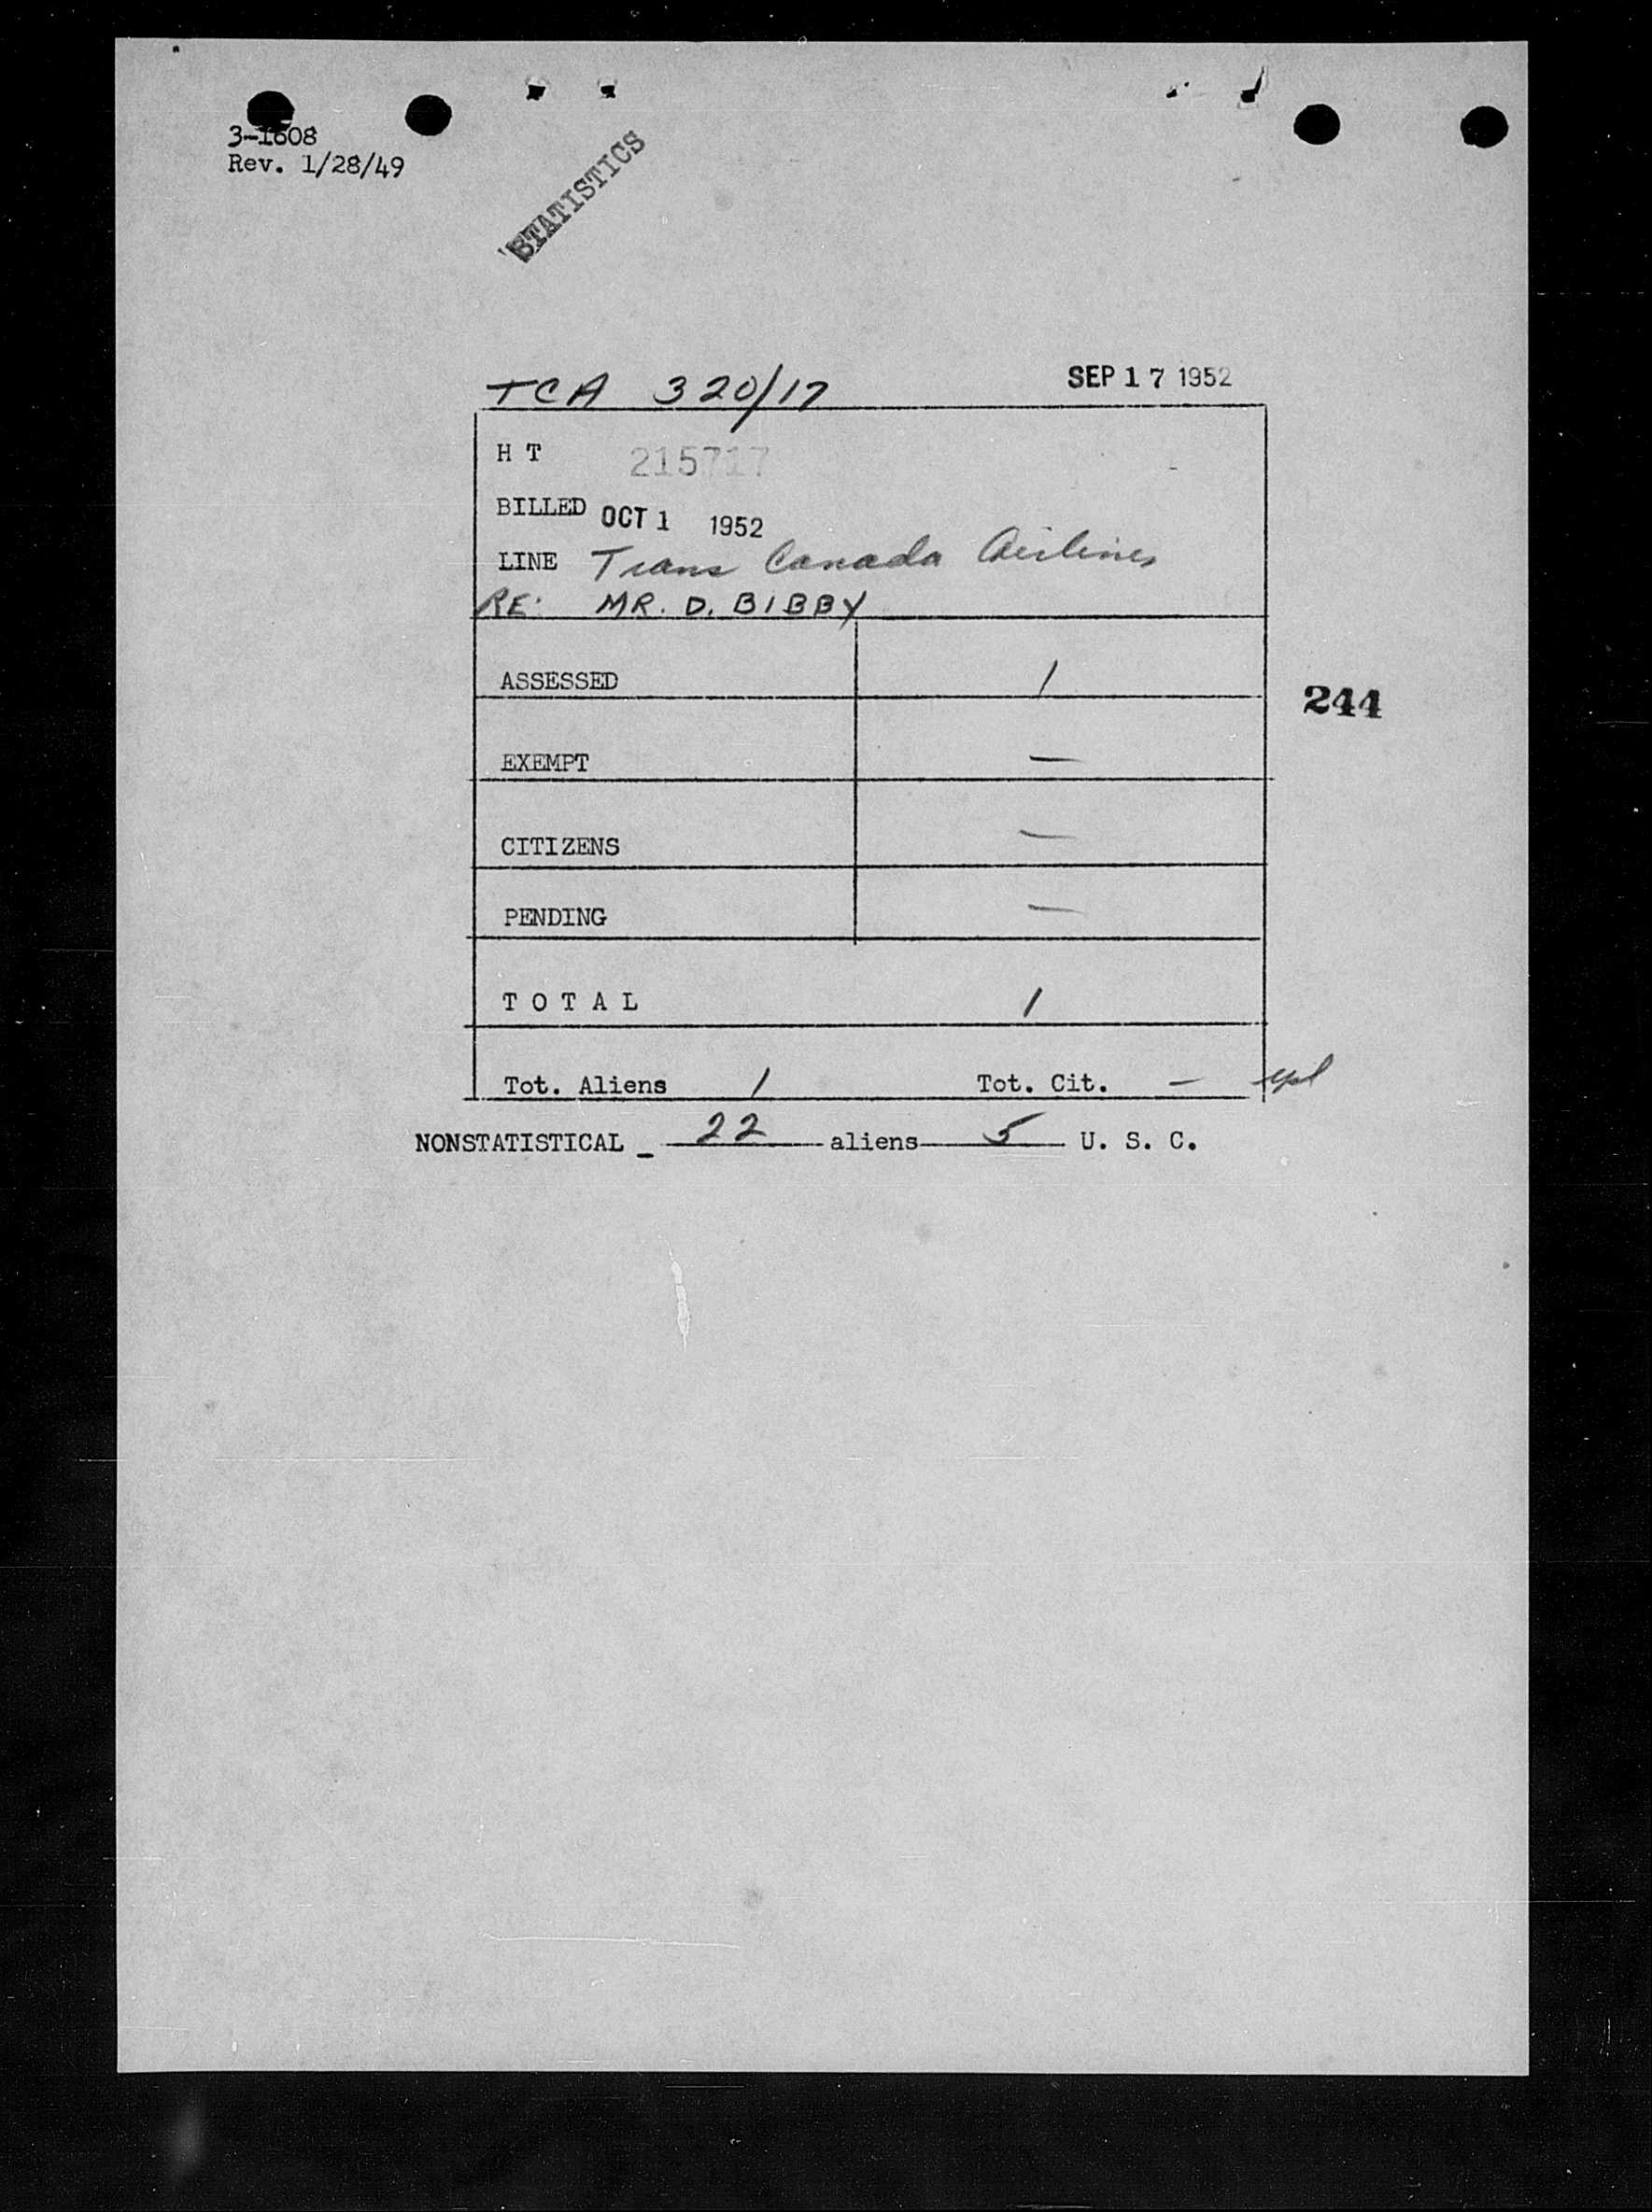 3-1608
Rev. 1/28/49
STATISTICS
TCA 320/17 SEP 17 1952
H T 215717
BILLED OCT 1 1952
LINE Trans Canada Airlines
RE: MR. D. BIBBY
ASSESSED 1
244
EXEMPT —
CITIZENS —
PENDING —
T O T A L 1
Tot. Aliens 1 Tot. Cit. —
NONSTATISTICAL - 22 aliens 5 U. S. C.